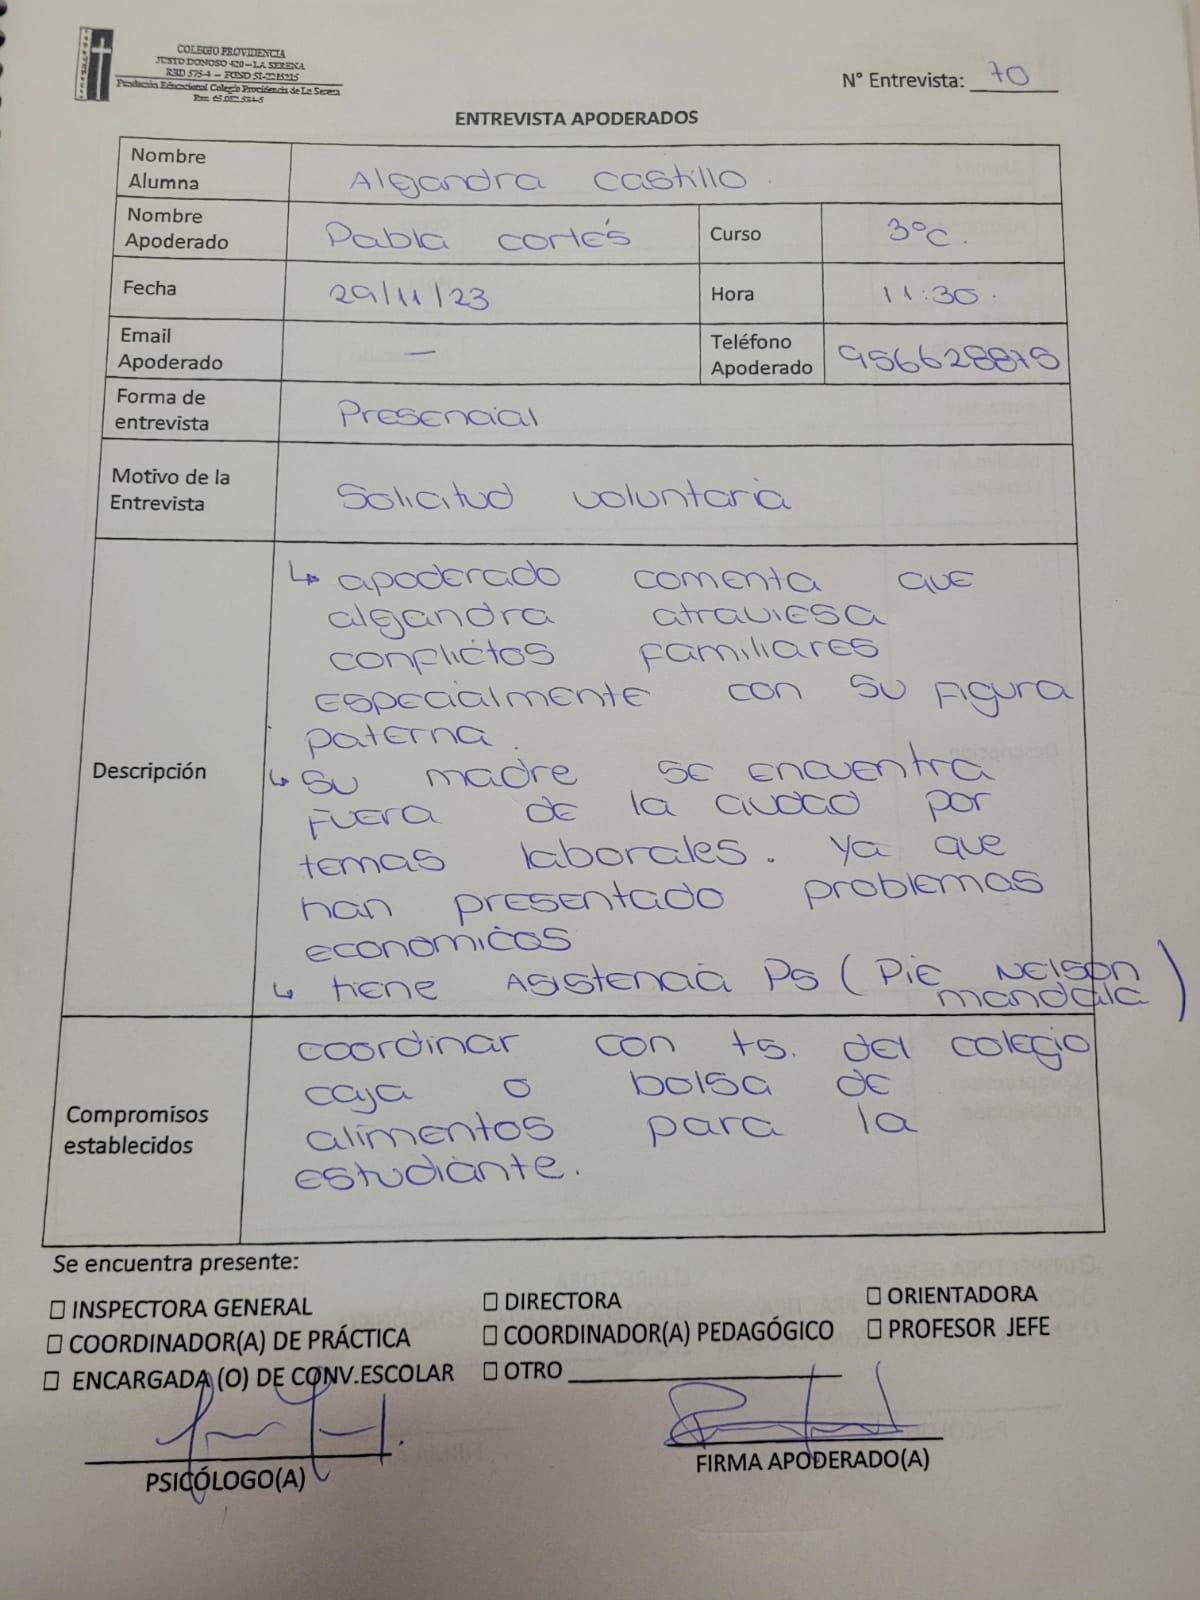 COLEGIO PROVIDENCIA
JUSTO DONOSO 420 – LA SERENA
RBD 575-4 – FONO 51-2215215
Fundación Educacional Colegio Providencia de La Serena
N° Entrevista: 70
ENTREVISTA APODERADOS
Nombre Alumna Alejandra Castillo
Nombre Apoderado Pabla Cortés Curso 3°C.
Fecha 29/11/23 Hora 11:30.
Email Apoderado — Teléfono Apoderado 956628875
Forma de entrevista Presencial
Motivo de la Entrevista Solicitud voluntaria
Descripción
↳ apoderado comenta que
alejandra atraviesa
conflictos familiares
especialmente con su figura
paterna.
↳ su madre se encuentra
fuera de la ciudad por
temas laborales. ya que
han presentado problemas
economicos
↳ tiene Asistencia Ps (Pie Nelson
mandala)
Compromisos establecidos
coordinar con ts. del colegio
caja o bolsa de
alimentos para la
estudiante.
Se encuentra presente:
☐ INSPECTORA GENERAL ☐ DIRECTORA ☐ ORIENTADORA
☐ COORDINADOR(A) DE PRÁCTICA ☐ COORDINADOR(A) PEDAGÓGICO ☐ PROFESOR JEFE
☐ ENCARGADA (O) DE CONV.ESCOLAR ☐ OTRO
PSICÓLOGO(A) FIRMA APODERADO(A)